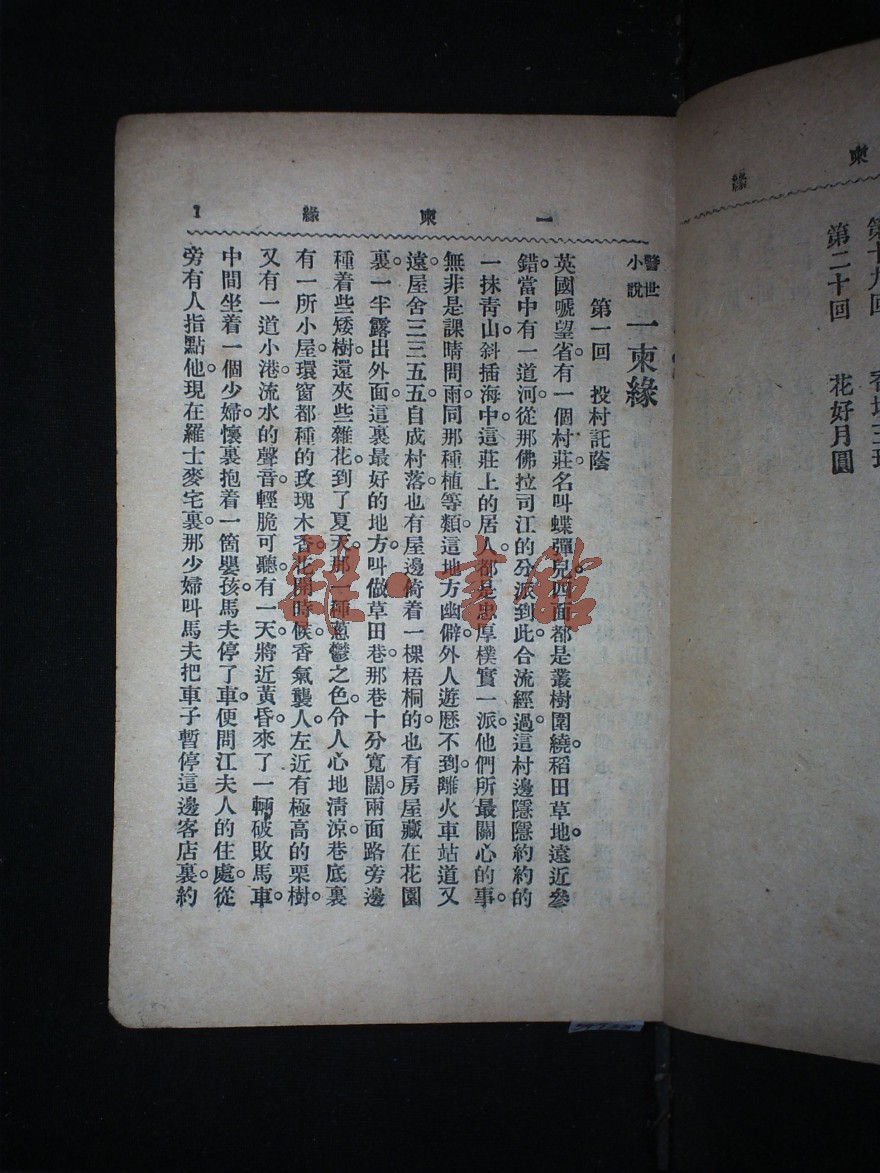 柬
緣
第二十回　花好月圓
一柬緣
1
警世小說　一柬緣
第一回　投村託蔭
英國嗁望省。有一個村莊。名叫蝶彈兒。四面都是叢樹圍繞。稻田草地。遠近參
錯。當中有一道河。從那佛拉司江的分派。到此合流。經過這村邊。隱隱約約的
一抹青山。斜插海中。這莊上的居人。都是忠厚樸實一派。他們所最關心的事。
無非是課晴問雨。同那種植等類。這地方幽僻。外人遊歷不到。離火車站道又
遠。屋舍三三五五。自成村落。也有屋邊倚着一棵梧桐的。也有房屋藏在花園
裏。一半露出外面。這裏最好的地方。叫做草田巷。那巷十分寬闊。兩面路旁邊
種着些矮樹。還夾些雜花。到了夏天。那一種葱鬱之色。令人心地淸凉。巷底裏
有一所小屋。環窗都種的玫瑰木香。花開時候。香氣襲人。左近有極高的栗樹。
又有一道小港。流水的聲音。輕脆可聽。有一天將近黃昏。來了一輛破敗馬車。
中間坐着一個少婦。懷裏抱着一箇嬰孩。馬夫停了車。便問江夫人的住處。從
旁有人指點他。現在羅士麥宅裏。那少婦叫馬夫把車子暫停這邊客店裏。約
雜·書館